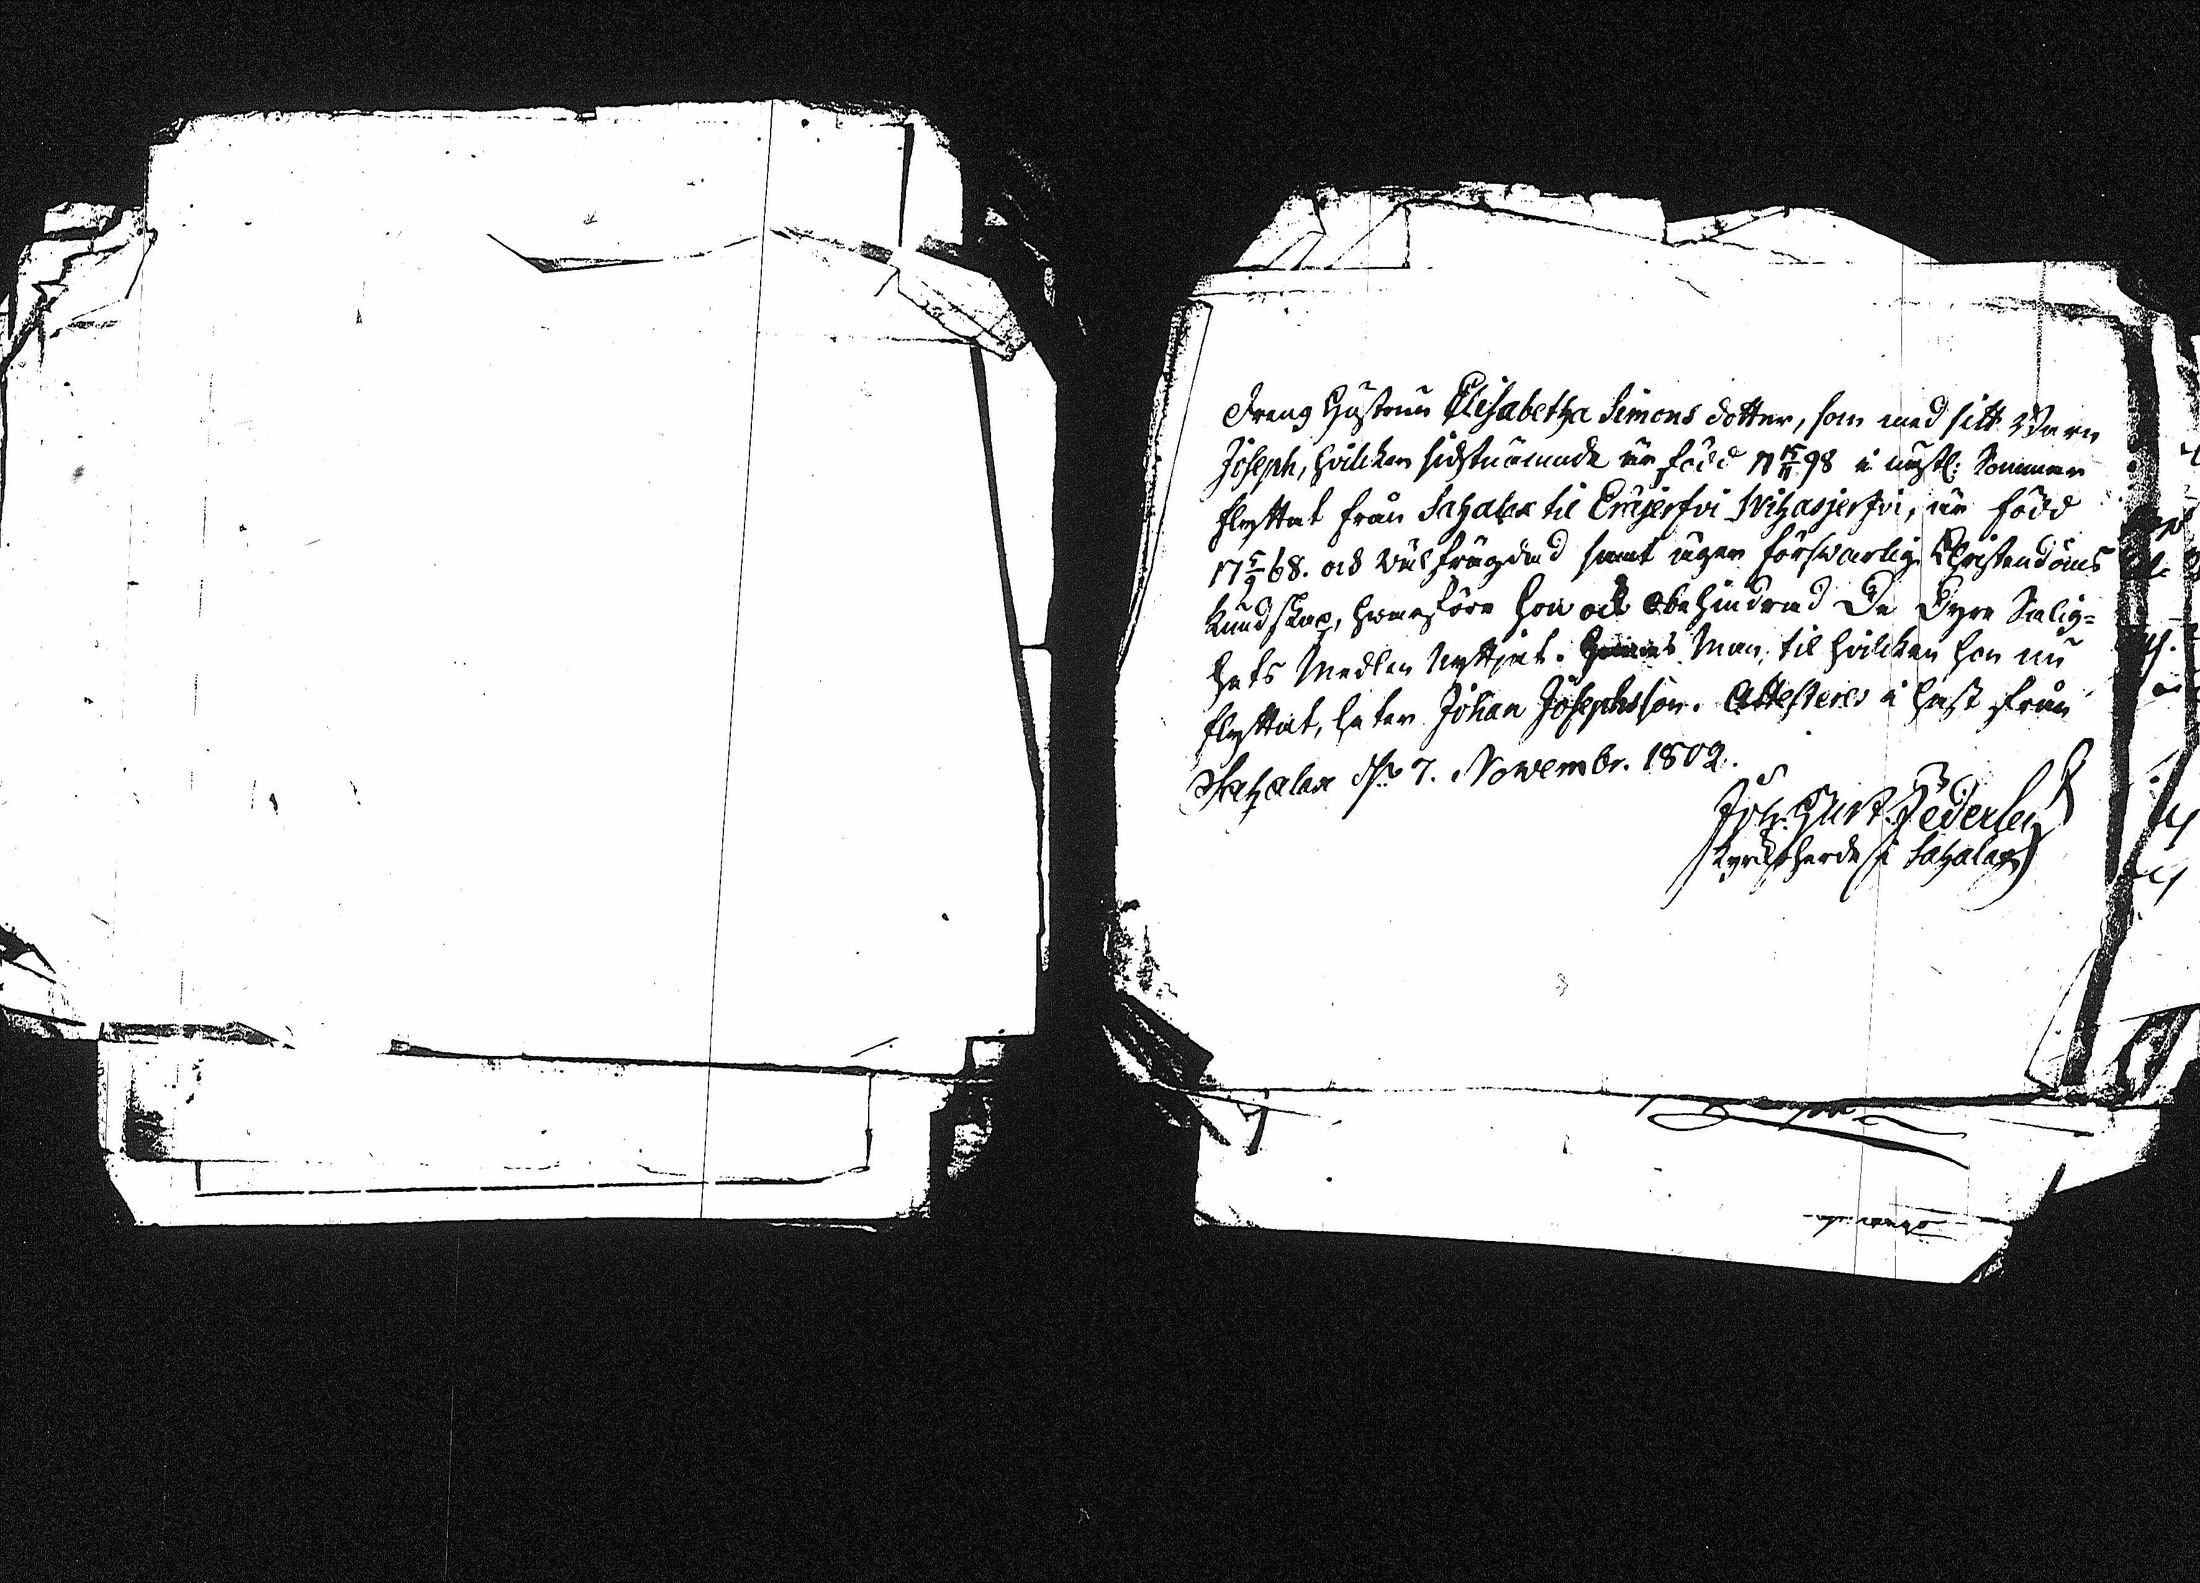 Dreng Hustrun Elisabetha Simons dotter, som med sitt Barn
Joseph, hvilcken sidstnämnde är född 17 15/11 98 i näst: Sommar
flyttat från Sahalax til Eräjerfvi Wihasjerfvi, är född
17 5/9 68. och väl frägdad samt äger förswarlig Christendoms
kundskap, hwarföre hon ock obehindrad De Dyre Salig=
hets Medlen Nyttjat. Hennes Man, til hvilcken hon nu
flyttat, heter Johan Josephsson. Attesteres i hast från
Sahalax d. 7. Novembr. 1802.
Joh. Gust. Pederlej
Kyrckoherde i Sahalax